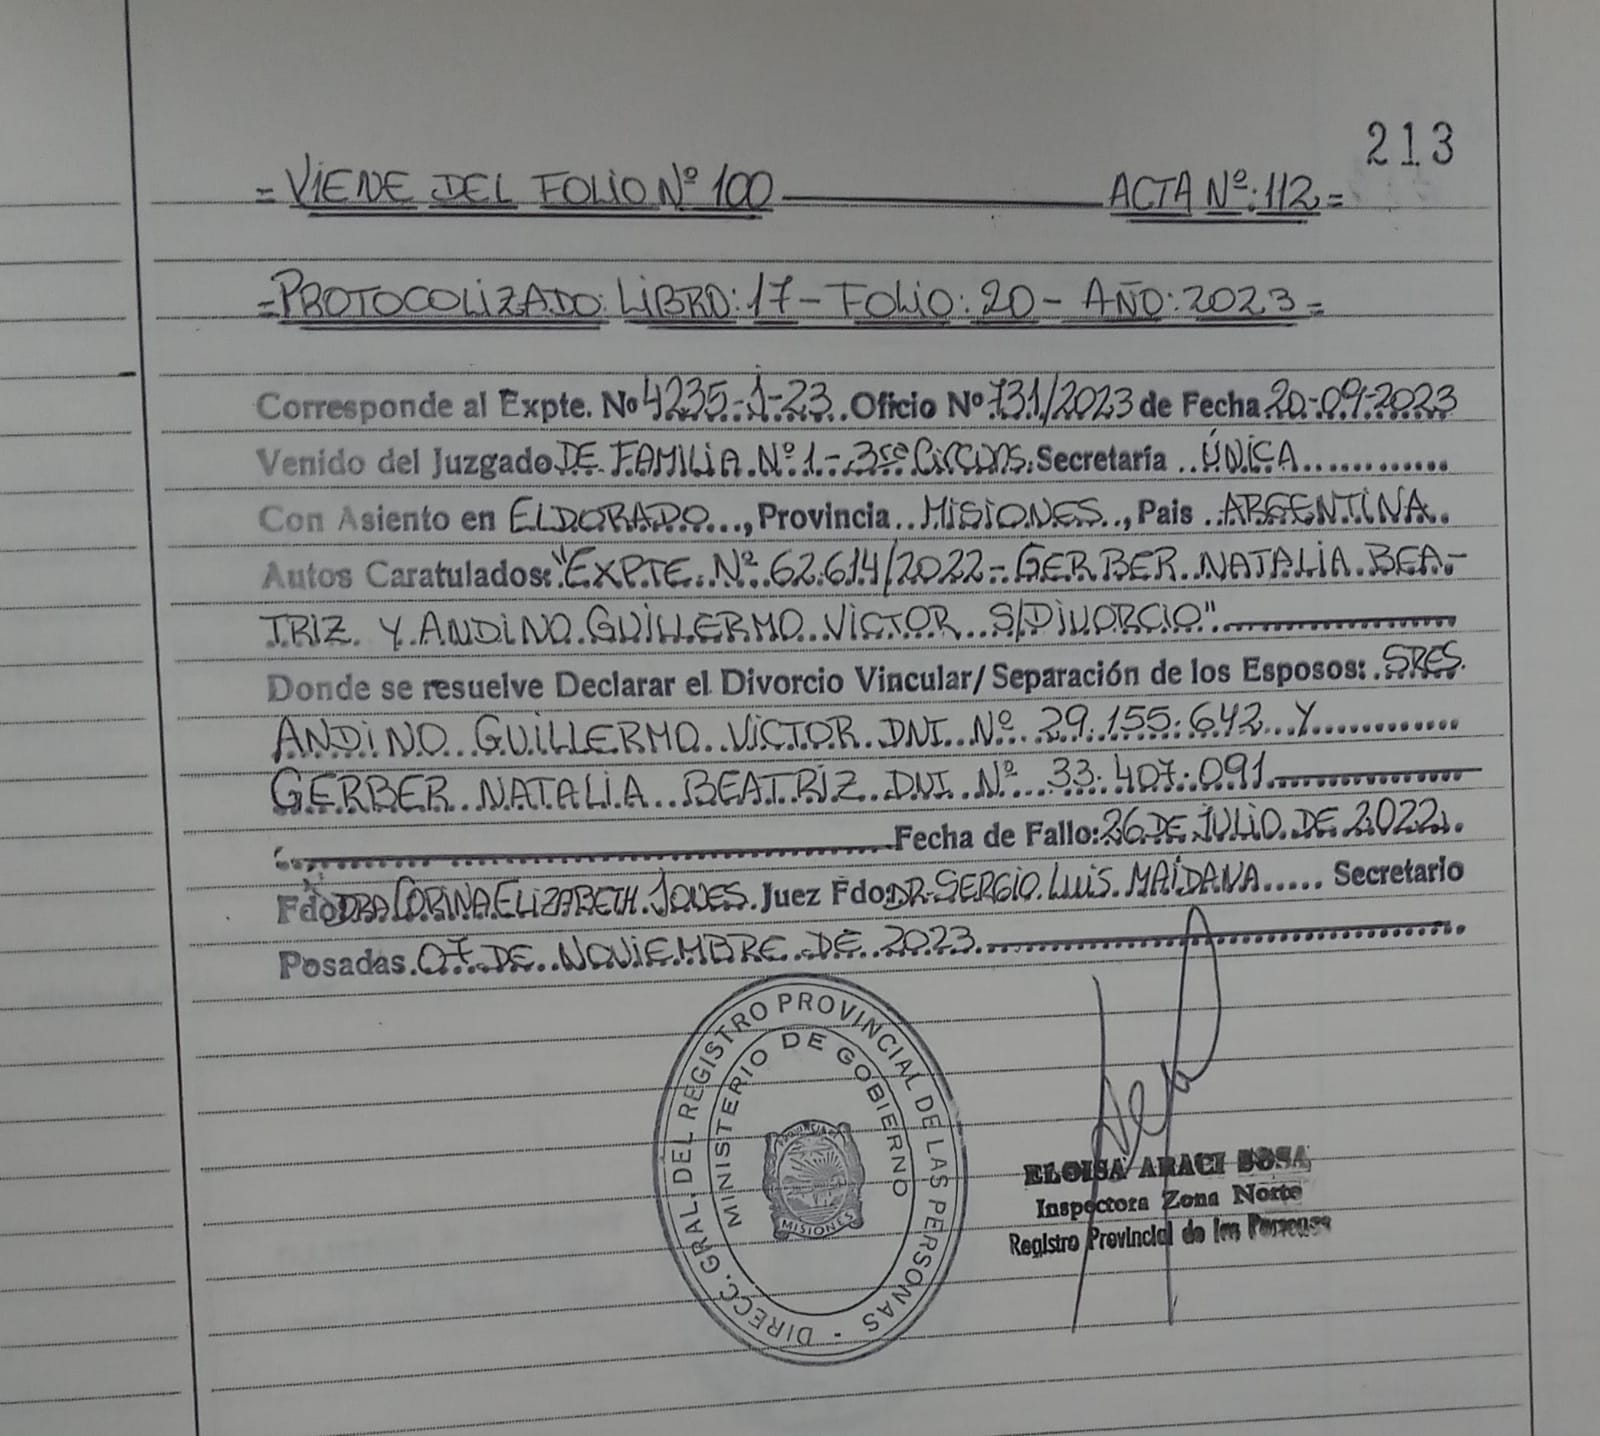 213
= VIENE DEL FOLIO Nº 100 ACTA Nº: 112 =
= PROTOCOLIZADO: LIBRO: 17 - FOLIO: 20 - AÑO: 2023 =
Corresponde al Expte. Nº 4235-1-23 Oficio Nº 731/2023 de Fecha 20-09-2023
Venido del Juzgado DE FAMILIA Nº 1 - 3ra Circuns. Secretaría ÚNICA
Con Asiento en ELDORADO, Provincia MISIONES, Pais ARGENTINA.
Autos Caratulados: "EXPTE. Nº 62.614/2022 - GERBER NATALIA BEA-
TRIZ Y ANDINO GUILLERMO VICTOR S/DIVORCIO"
Donde se resuelve Declarar el Divorcio Vincular/ Separación de los Esposos: SRES.
ANDINO GUILLERMO VICTOR DNI Nº 29.155.642 Y
GERBER NATALIA BEATRIZ DNI Nº 33.407.091
Fecha de Fallo: 26 DE JULIO DE 2022.
Fdo DRA CORINA ELIZABETH JONES. Juez Fdo: DR. SERGIO LUIS MAIDANA Secretario
Posadas. 07 DE NOVIEMBRE DE 2023.
DIRECC. GRAL. DEL REGISTRO PROVINCIAL DE LAS PERSONAS
MINISTERIO DE GOBIERNO
PROVINCIA DE
MISIONES
ELOISA ARACI SOSA
Inspectora Zona Norte
Registro Provincial de las Personas